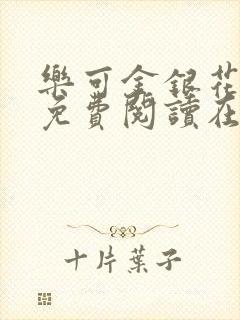 樂可金銀花
免費閱讀在
十片葉子